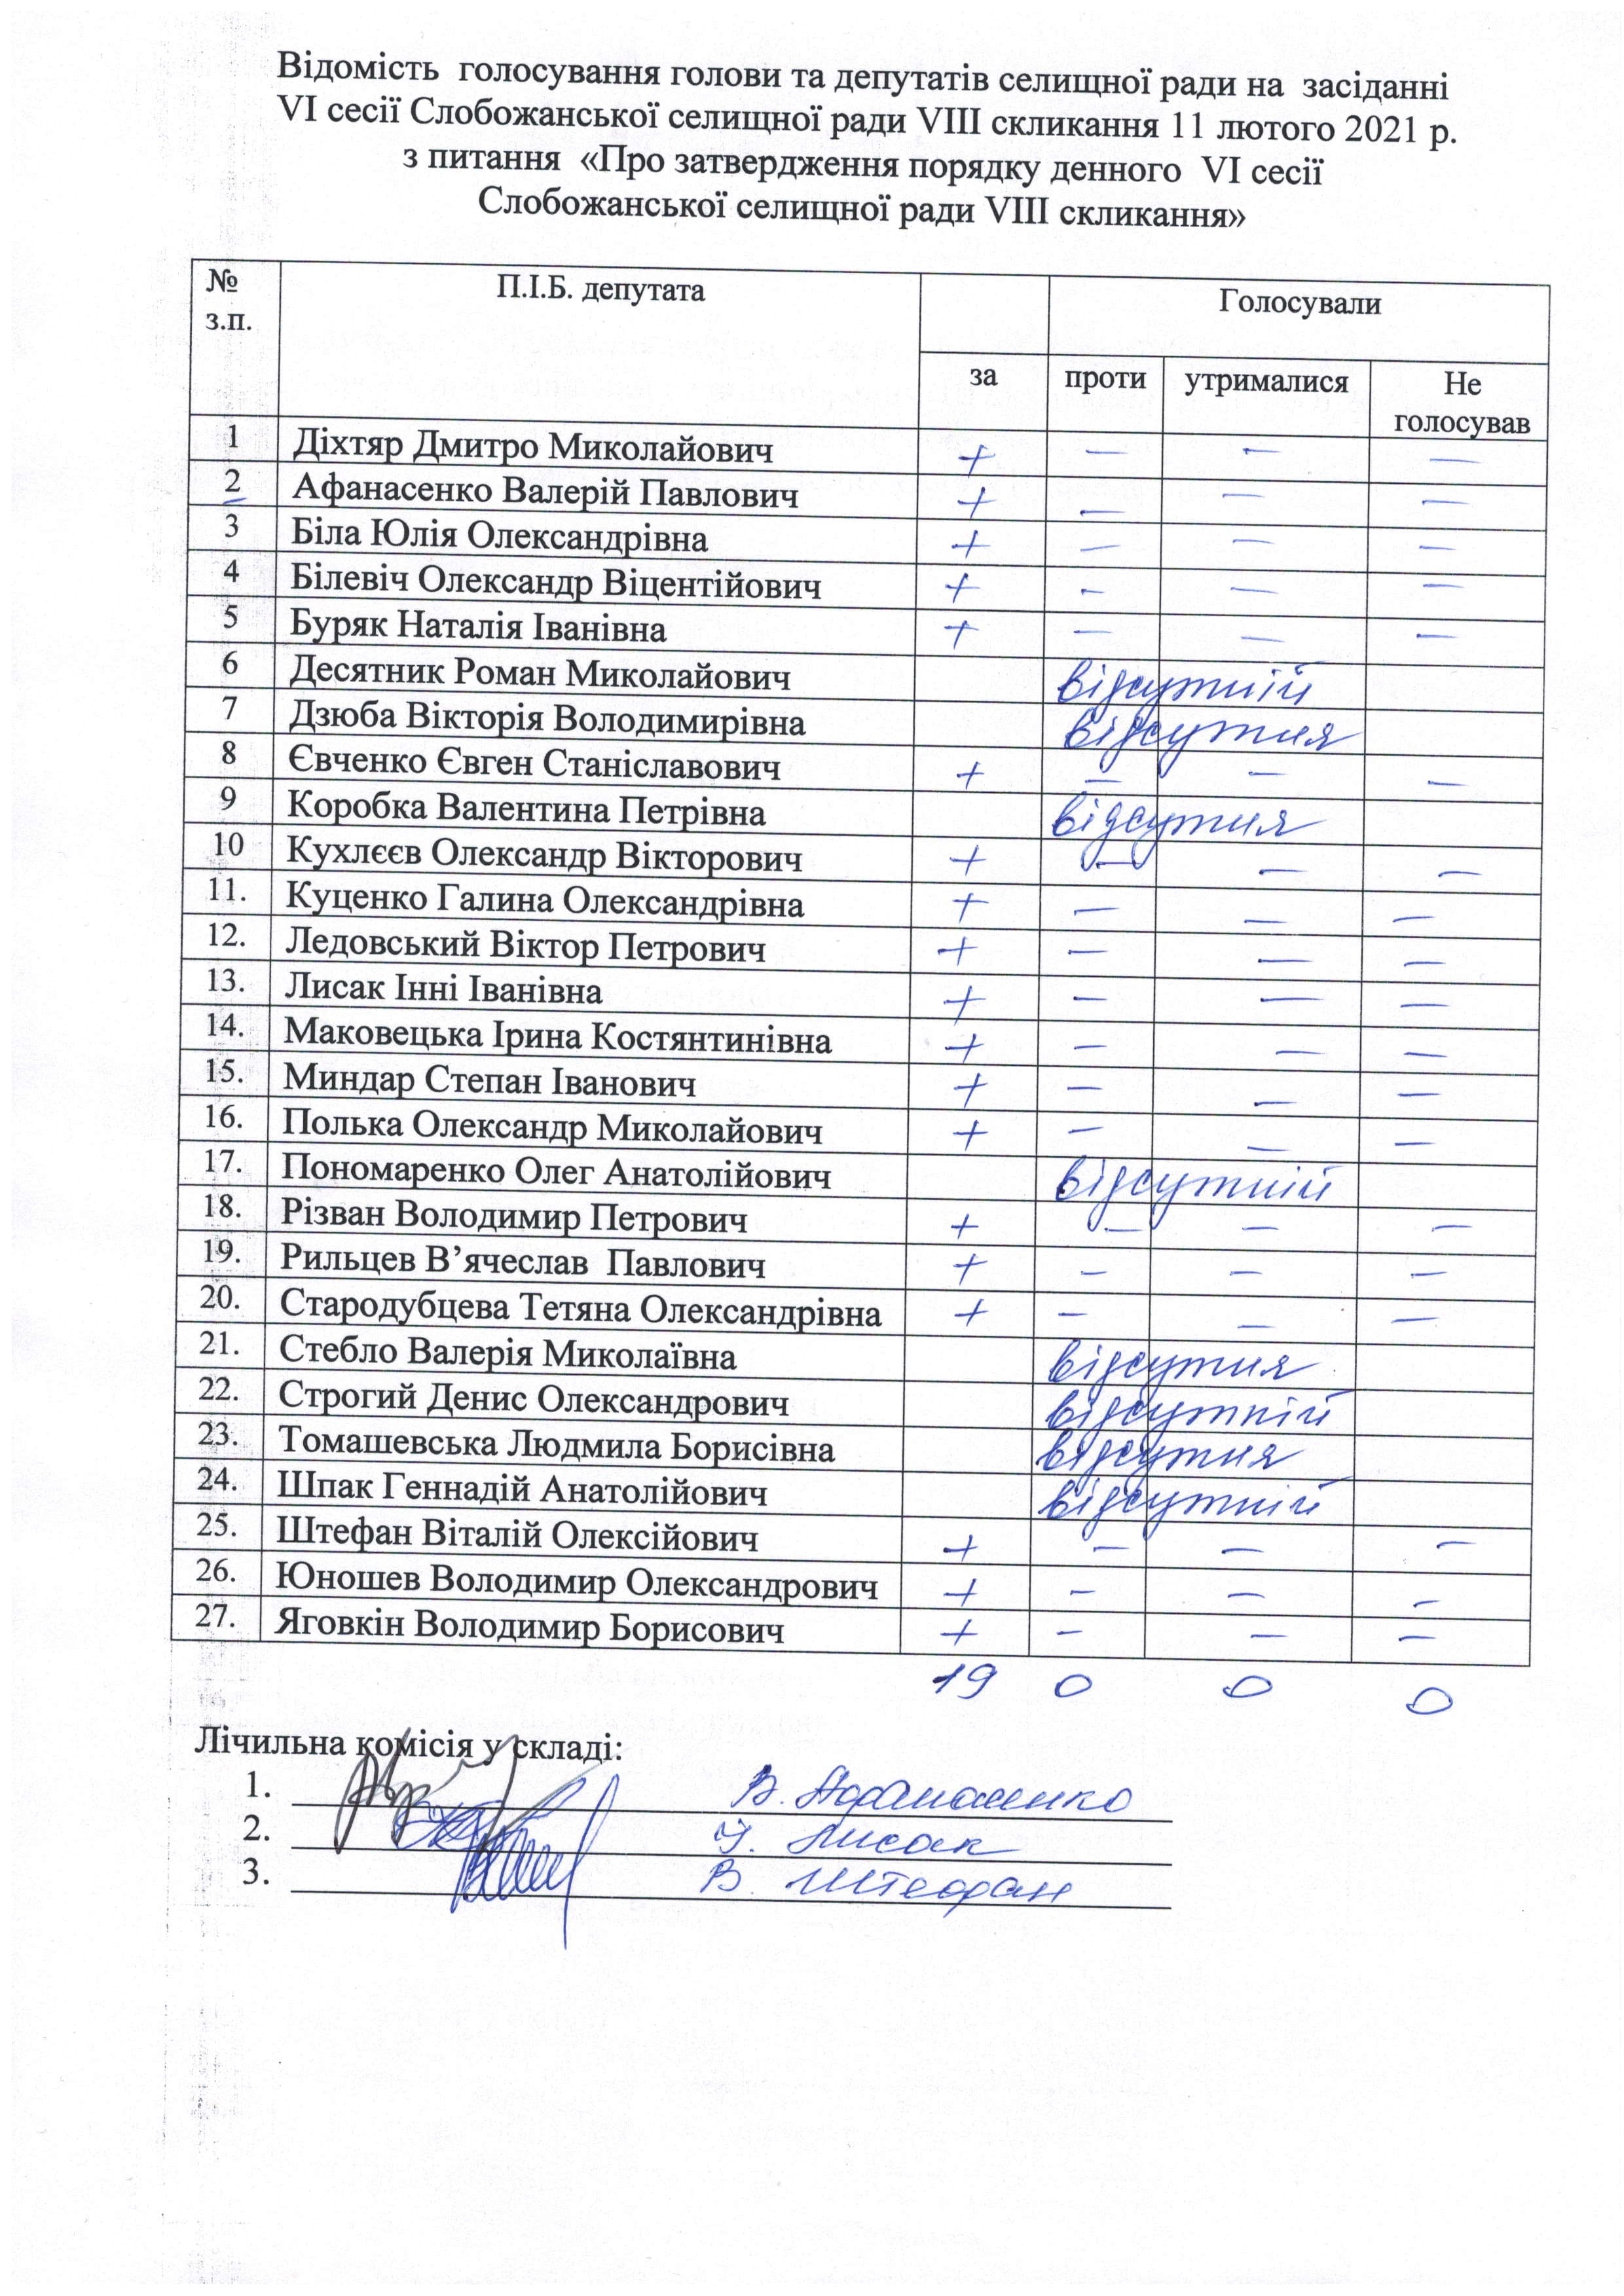 Відомість голосування голови та депутатів селищної ради на засіданні
VI сесії Слобожанської селищної ради VIII скликання 11 лютого 2021 р.
з питання «Про затвердження порядку денного VI сесії
Слобожанської селищної ради VIII скликання»
№ з.п. П.І.Б. депутата Голосували
за проти утрималися Не голосував
1 Діхтяр Дмитро Миколайович + — — —
2 Афанасенко Валерій Павлович + — — —
3 Біла Юлія Олександрівна + — — —
4 Білевіч Олександр Віцентійович + — — —
5 Буряк Наталія Іванівна + — — —
6 Десятник Роман Миколайович відсутній
7 Дзюба Вікторія Володимирівна відсутня
8 Євченко Євген Станіславович + — — —
9 Коробка Валентина Петрівна відсутня
10 Кухлєєв Олександр Вікторович + — — —
11. Куценко Галина Олександрівна + — — —
12. Ледовський Віктор Петрович + — — —
13. Лисак Інні Іванівна + — — —
14. Маковецька Ірина Костянтинівна + — — —
15. Миндар Степан Іванович + — — —
16. Полька Олександр Миколайович + — — —
17. Пономаренко Олег Анатолійович відсутній
18. Різван Володимир Петрович + — — —
19. Рильцев В’ячеслав Павлович + — — —
20. Стародубцева Тетяна Олександрівна + — — —
21. Стебло Валерія Миколаївна відсутня
22. Строгий Денис Олександрович відсутній
23. Томашевська Людмила Борисівна відсутня
24. Шпак Геннадій Анатолійович відсутній
25. Штефан Віталій Олексійович + — — —
26. Юношев Володимир Олександрович + — — —
27. Яговкін Володимир Борисович + — — —
19 0 0 0
Лічильна комісія у складі:
1. В. Афанасенко
2. І. Лисак
3. В. Штефан